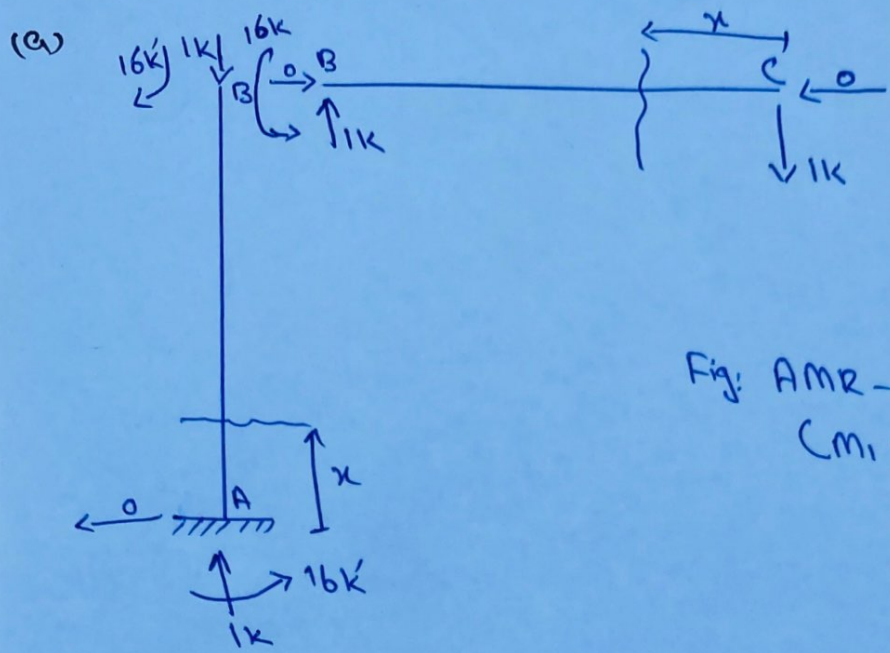 (a)
16K' 1K 16K
B 0 B
1K
x
C 0
1K
Fig: AMR -
(m1
x
0 A
16K'
1K